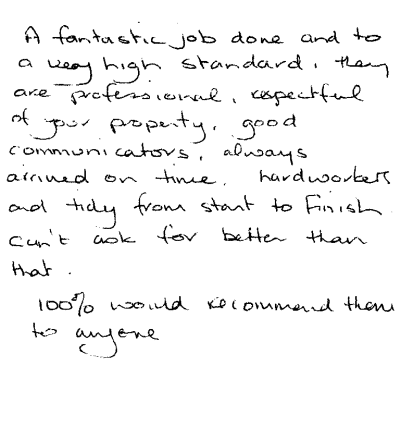 A fantastic job done and to
a very high standard, they
are professional, respectful
of your property, good
communicators, always
arrived on time, hardworkers
and tidy from start to finish
can't ask for better than
that.
100% would recommend them
to anyone